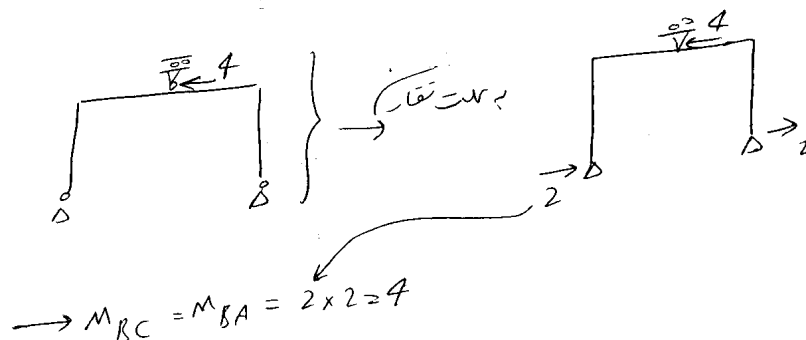 4
4
به علت تقارن
2
2
→ M_BC = M_BA = 2 × 2 = 4